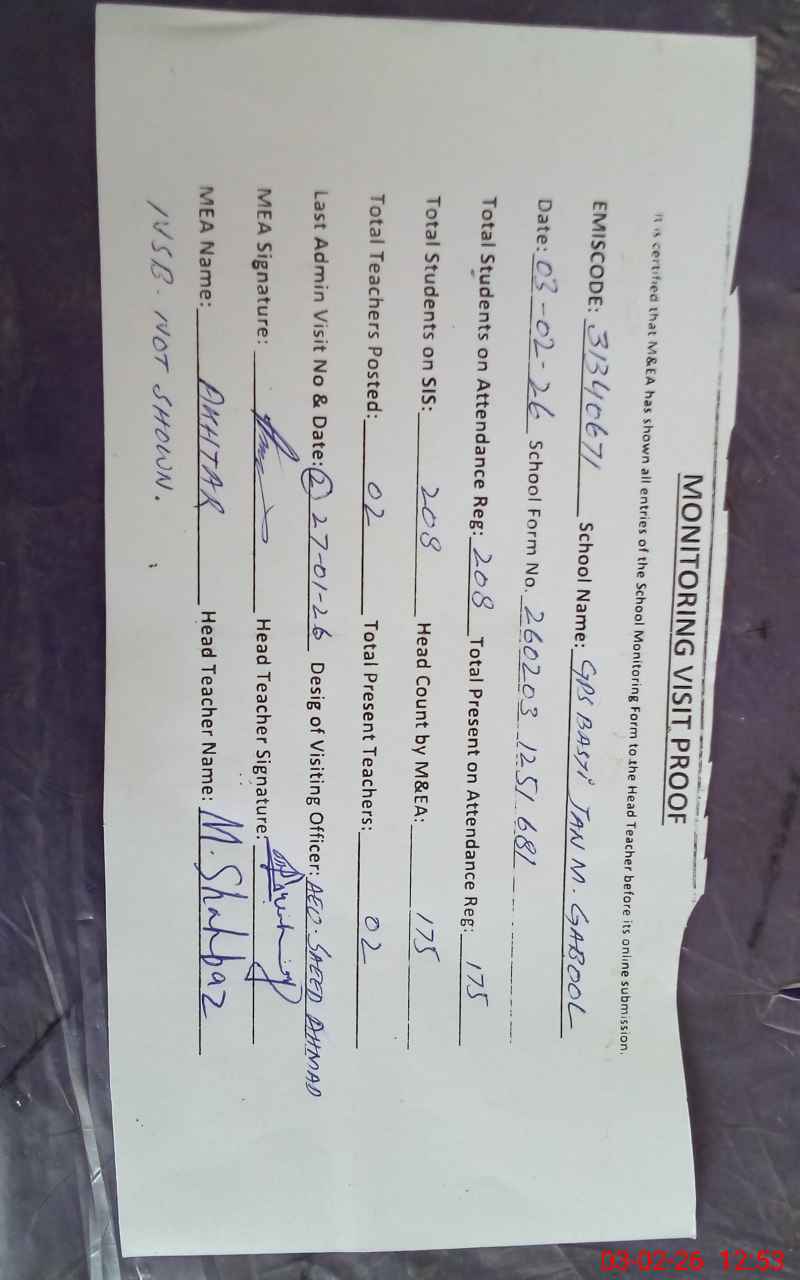 MONITORING VISIT PROOF
It is certified that M&EA has shown all entries of the School Monitoring Form to the Head Teacher before its online submission.
EMISCODE: 31340671 School Name: GPS BASTI JAN M. GABOOL
Date: 03-02-26 School Form No. 260203 1251 681
Total Students on Attendance Reg: 208 Total Present on Attendance Reg: 175
Total Students on SIS: 208 Head Count by M&EA: 175
Total Teachers Posted: 02 Total Present Teachers: 02
Last Admin Visit No & Date: (2) 27-01-26 Desig of Visiting Officer: AEO. SAEED AHMAD
MEA Signature: Head Teacher Signature:
MEA Name: AKHTAR Head Teacher Name: M. Shahbaz
NSB. NOT SHOWN.
03-02-26 12:53